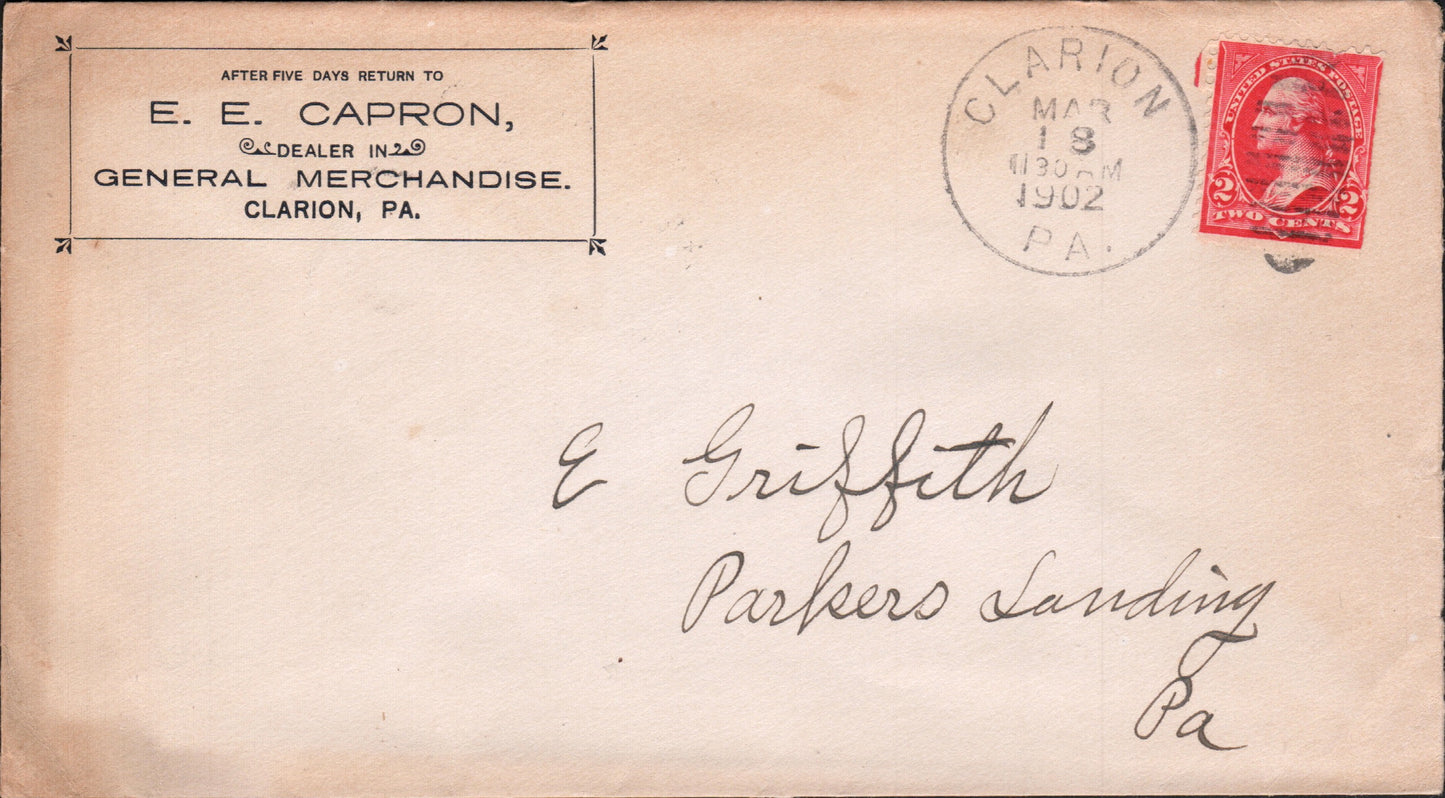 AFTER FIVE DAYS RETURN TO
E. E. CAPRON,
DEALER IN
GENERAL MERCHANDISE.
CLARION, PA.
CLARION
MAR
18
1130 AM
1902
PA.
UNITED STATES POSTAGE
2 2
TWO CENTS
E Griffith
Parkers Landing
Pa